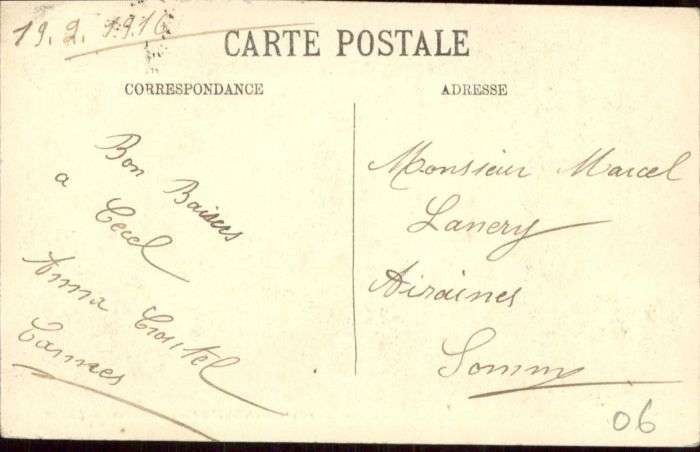 19.2.1916
CARTE POSTALE
CORRESPONDANCE
ADRESSE
Bon Baisers
a Cecel
Anna
Cannes
Monsieur Marcel
Lanery
Airaines
Somm
06